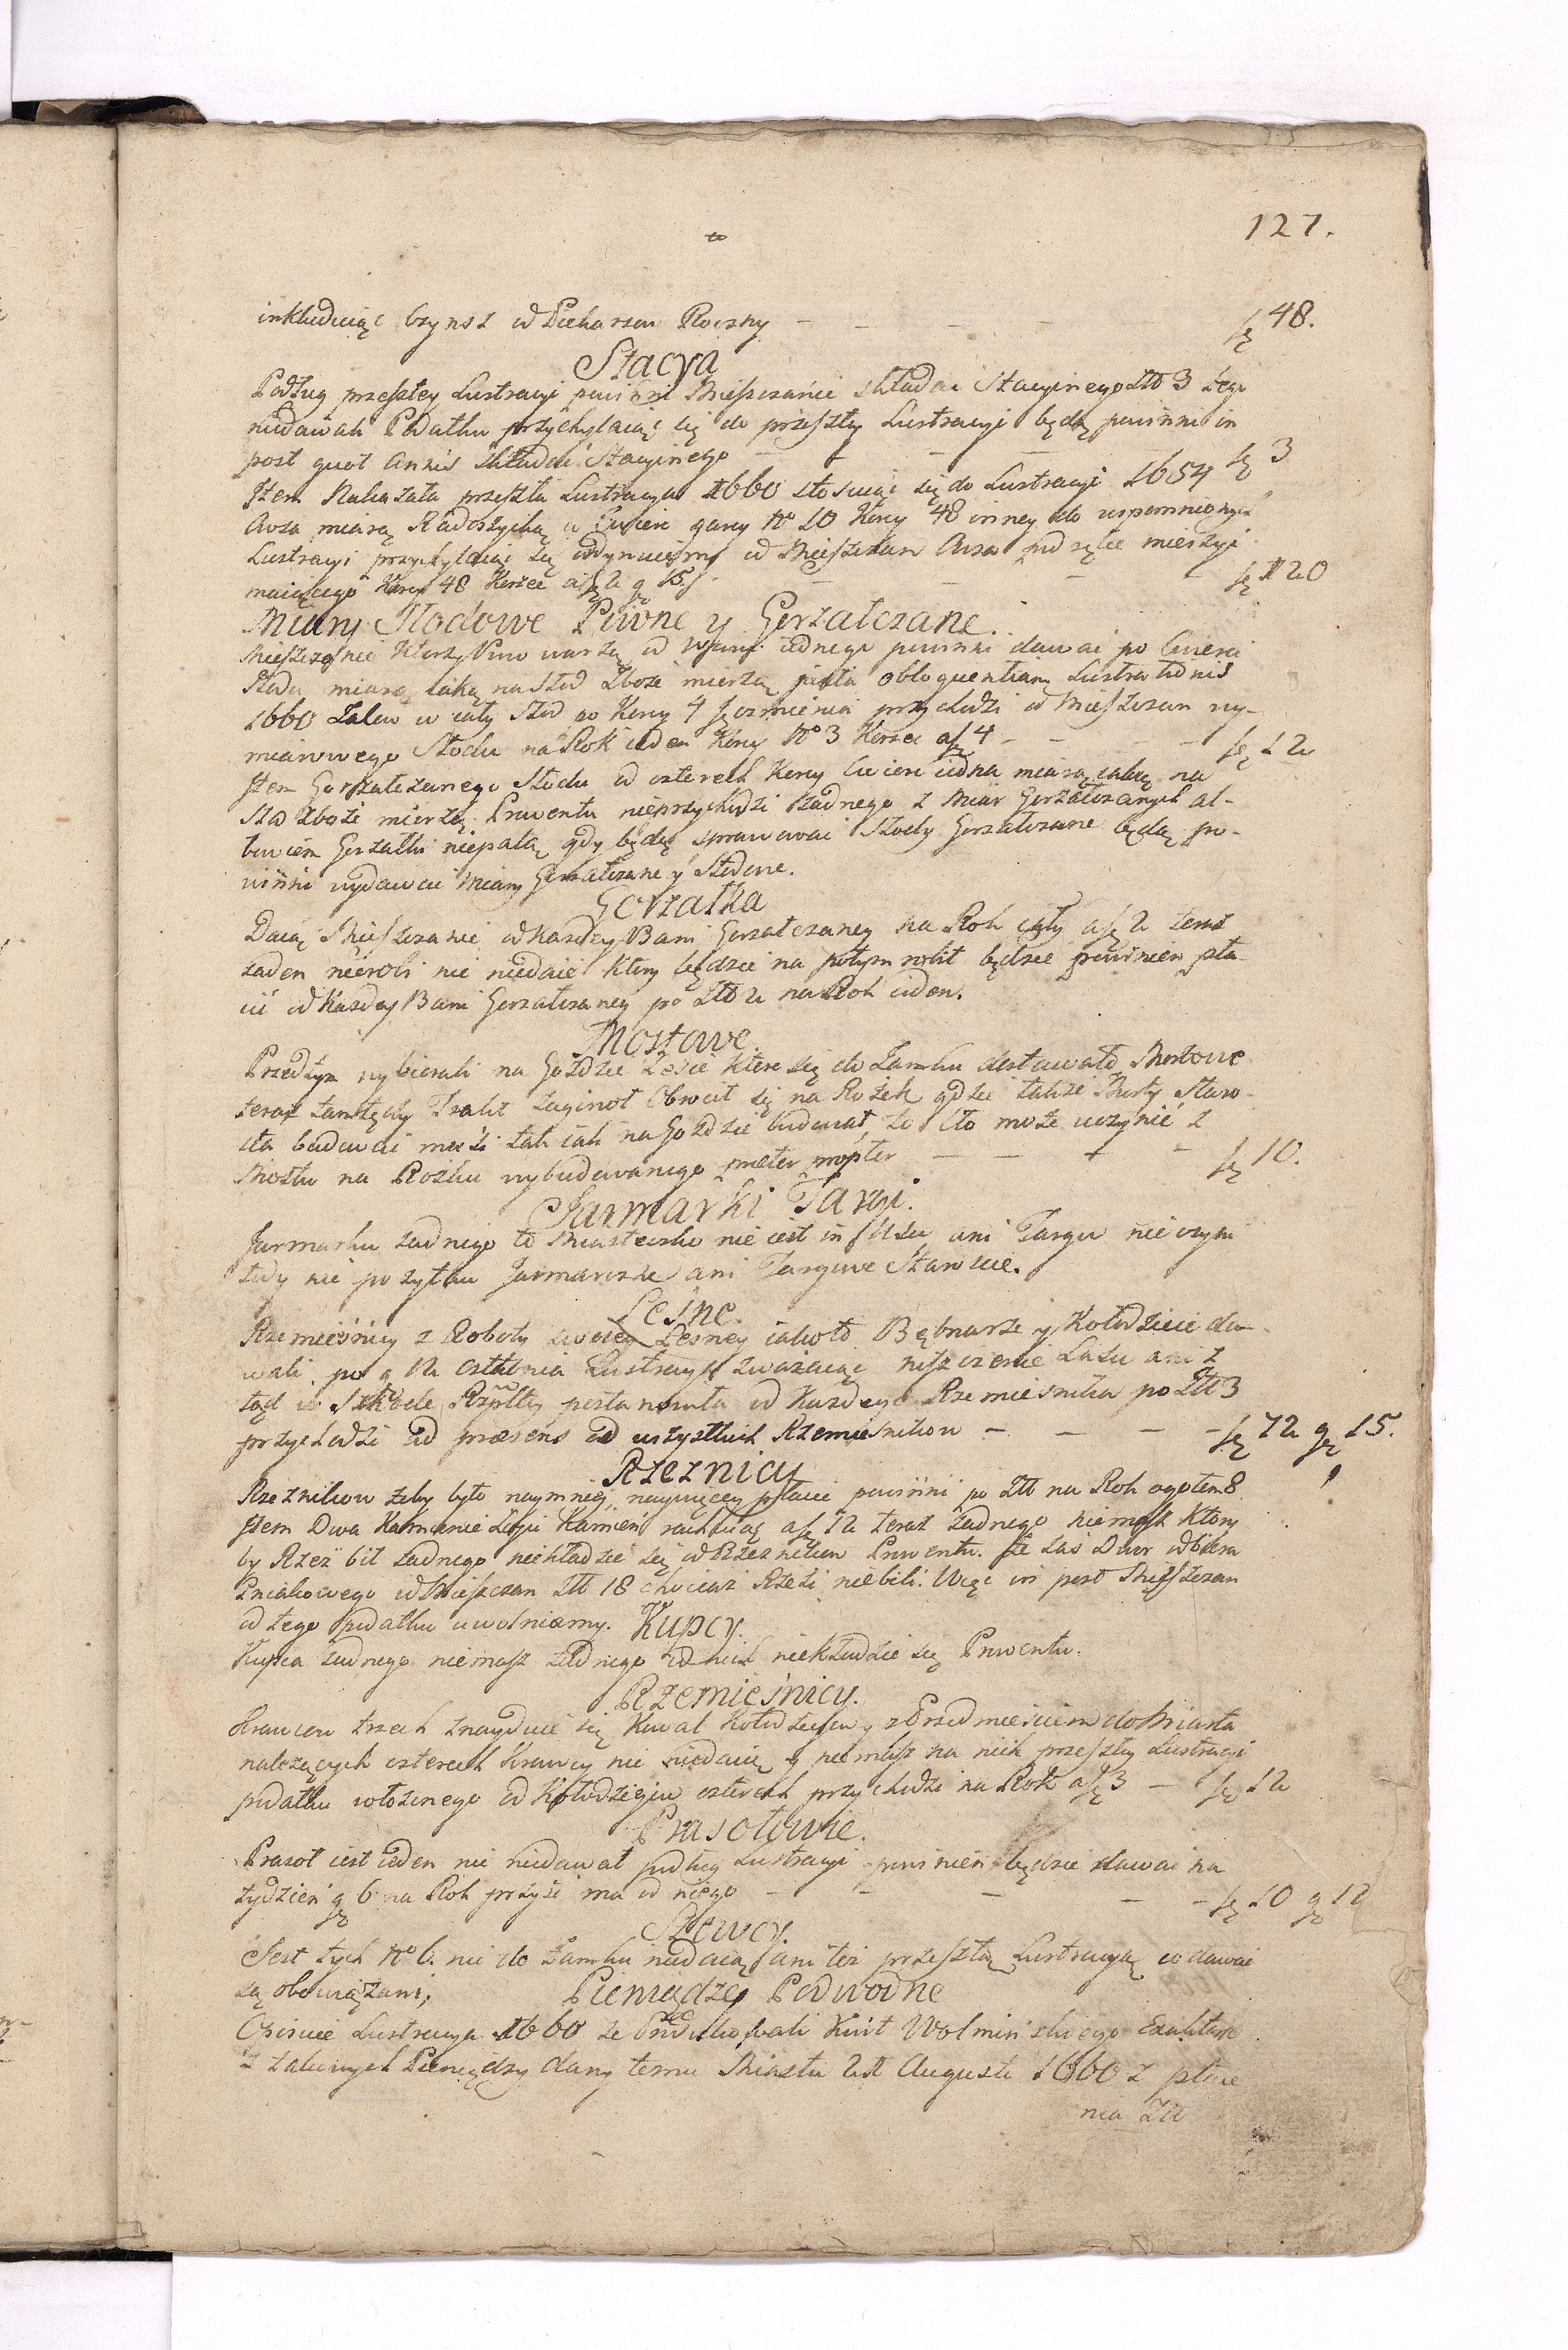 127.
inkluduiąc Czynsz od Piekarzow Roczny — — — — fl 48.
Stacya
Podług przeszłey Lustracyi powinni Mieszczanie składac Stacyinego Złł 3 tego
niedawali Podatku przychylaiąc się do przeszłey Lustracyi będą powinni in
post quot annis składać Stacyinego — — — — fl 3
Item Nakazała przeszła Lustracya 1660 stosuiąc się do Lustracyi 1654
Owsa miarą Radoszycką w Cwierc garcy No 10 Korcy 48 inney do wspomnionych
Lustracyi przychylaiąc się od Mieszczan Owsa mierzyi
maiącego Korcy 48 Korzec a fl 2 g 15 — — — fl 120
Miary Słodowe Piwne y Gorzałczane.
Mieszczanie Którzy Piwo warzą od Waru iednego powinni dawać po Cwierci
Słodu miarą taką na Słod Zboże mierzą juxta obloquentiam Lustrationis
1660 Zalew w cały Słod po Korcy 4 Jęczmienia przychodzi od Mieszczan wy-
miarowego Słodu na Rok ieden Korcy No 3 Korzec a fl 4 — — — fl 12
Item Gorzałczanego Słodu od czterech Korcy Cwierc iedna miarą iaką na
Słod zboże mierzą. Prowentu nieprzychodzi żadnego z Miar Gorzałczanych al-
bowiem Gorzałki niepalą, gdy będą sprawowac Słody Gorzałczane będą po-
winni wydawać Miary Gorzałczane y Słodowe.
Gorzałka
Daią Mieszczanie od kazdey Bani Gorzałczaney na Rok cały a fl 2 teraz
żaden nierobi nic niedaie Ktory będzie na potym robił będzie powinien pła-
cić od Każdey Bani Gorzałczaney po Złł 2 na Rok ieden.
Mostowe.
Przedtym wybierali na Gozdzie Leście Ktore się do Zamku dostawało Mostowe
teraz tamtędy Trakt zaginoł Obrocił się na Rożek gdzie także Mosty Staro-
sta budować musi tak iak na Gozdzie budował, to Cło może uczynić z
Mostu na Rożku wybudowanego praeter propter — — — — fl 10.
Jarmarki Targi.
Jarmarku żadnego to Miasteczko nie iest in Usu ani Targu nie czyni
tedy nic pożytku Jarmarczne ani Targowe Staroscie.
Leśne.
Rzemieśnicy z Roboty swoiey Leśney iakoto Bębnarze y Kołodzieie da-
wali po g 12 ostatnia Lustracya zwazaiąc niszczenie Lasu ani z
tąd w Szkodę Rzpltey postanowiła od Kazdego Rzemiesnika po Złł 3
przychodzi ad praesens od wszystkich Rzemiesnikow — — — — fl 72 g 15.
Rzeznicy
Rzeznikow żeby było naymniey, naywięcey płacic powinni po Złł na Rok ogołem 8
Item Dwa Kamienie Łoiu Kamień rachuiąc a fl 12 teraz żadnego niemasz Ktory
by Rzez bił żadnego niekładzie się od Rzeznikow Prowentu. Że zas Dwor odbiera
Pniakowego od Mieszczan Złł 18 chociaż Rzezi niebili. Więc in post Mieszczan
od tego podatku uwolniamy. Kupcy.
Kupca żadnego niemasz żadnego od nich niekładzie się Prowentu.
Rzemieśnicy.
Krawcow trzech znayduie się Kowal Kołodzieiow z Przedmieściem do Miasta
nalezących czterech Krawcy nic niedaią y niemasz na nich przeszłey Lustracyi
podatku włożonego od Kołodzieiow czterech przychodzi na Rok a fl 3 — fl 12
Prasołowie.
Prasoł iest ieden nic niedawał podług Lustracyi powinien będzie dawac na
tydzień g 6 na Rok przyść ma od niego — — — — fl 10 g 12
Szewcy.
Jest tych No 6. nic do Zamku niedaią ani też przeszłą Lustracyą co dawac
są obowiązani; Pieniądze Podwodne
Opisuie Lustracya 1660 że Produkowali Kwit Wolminskiego Exaktora
z takowych Pieniędzy dany temu Miastu Augusti 1660 z płace
nia Złł